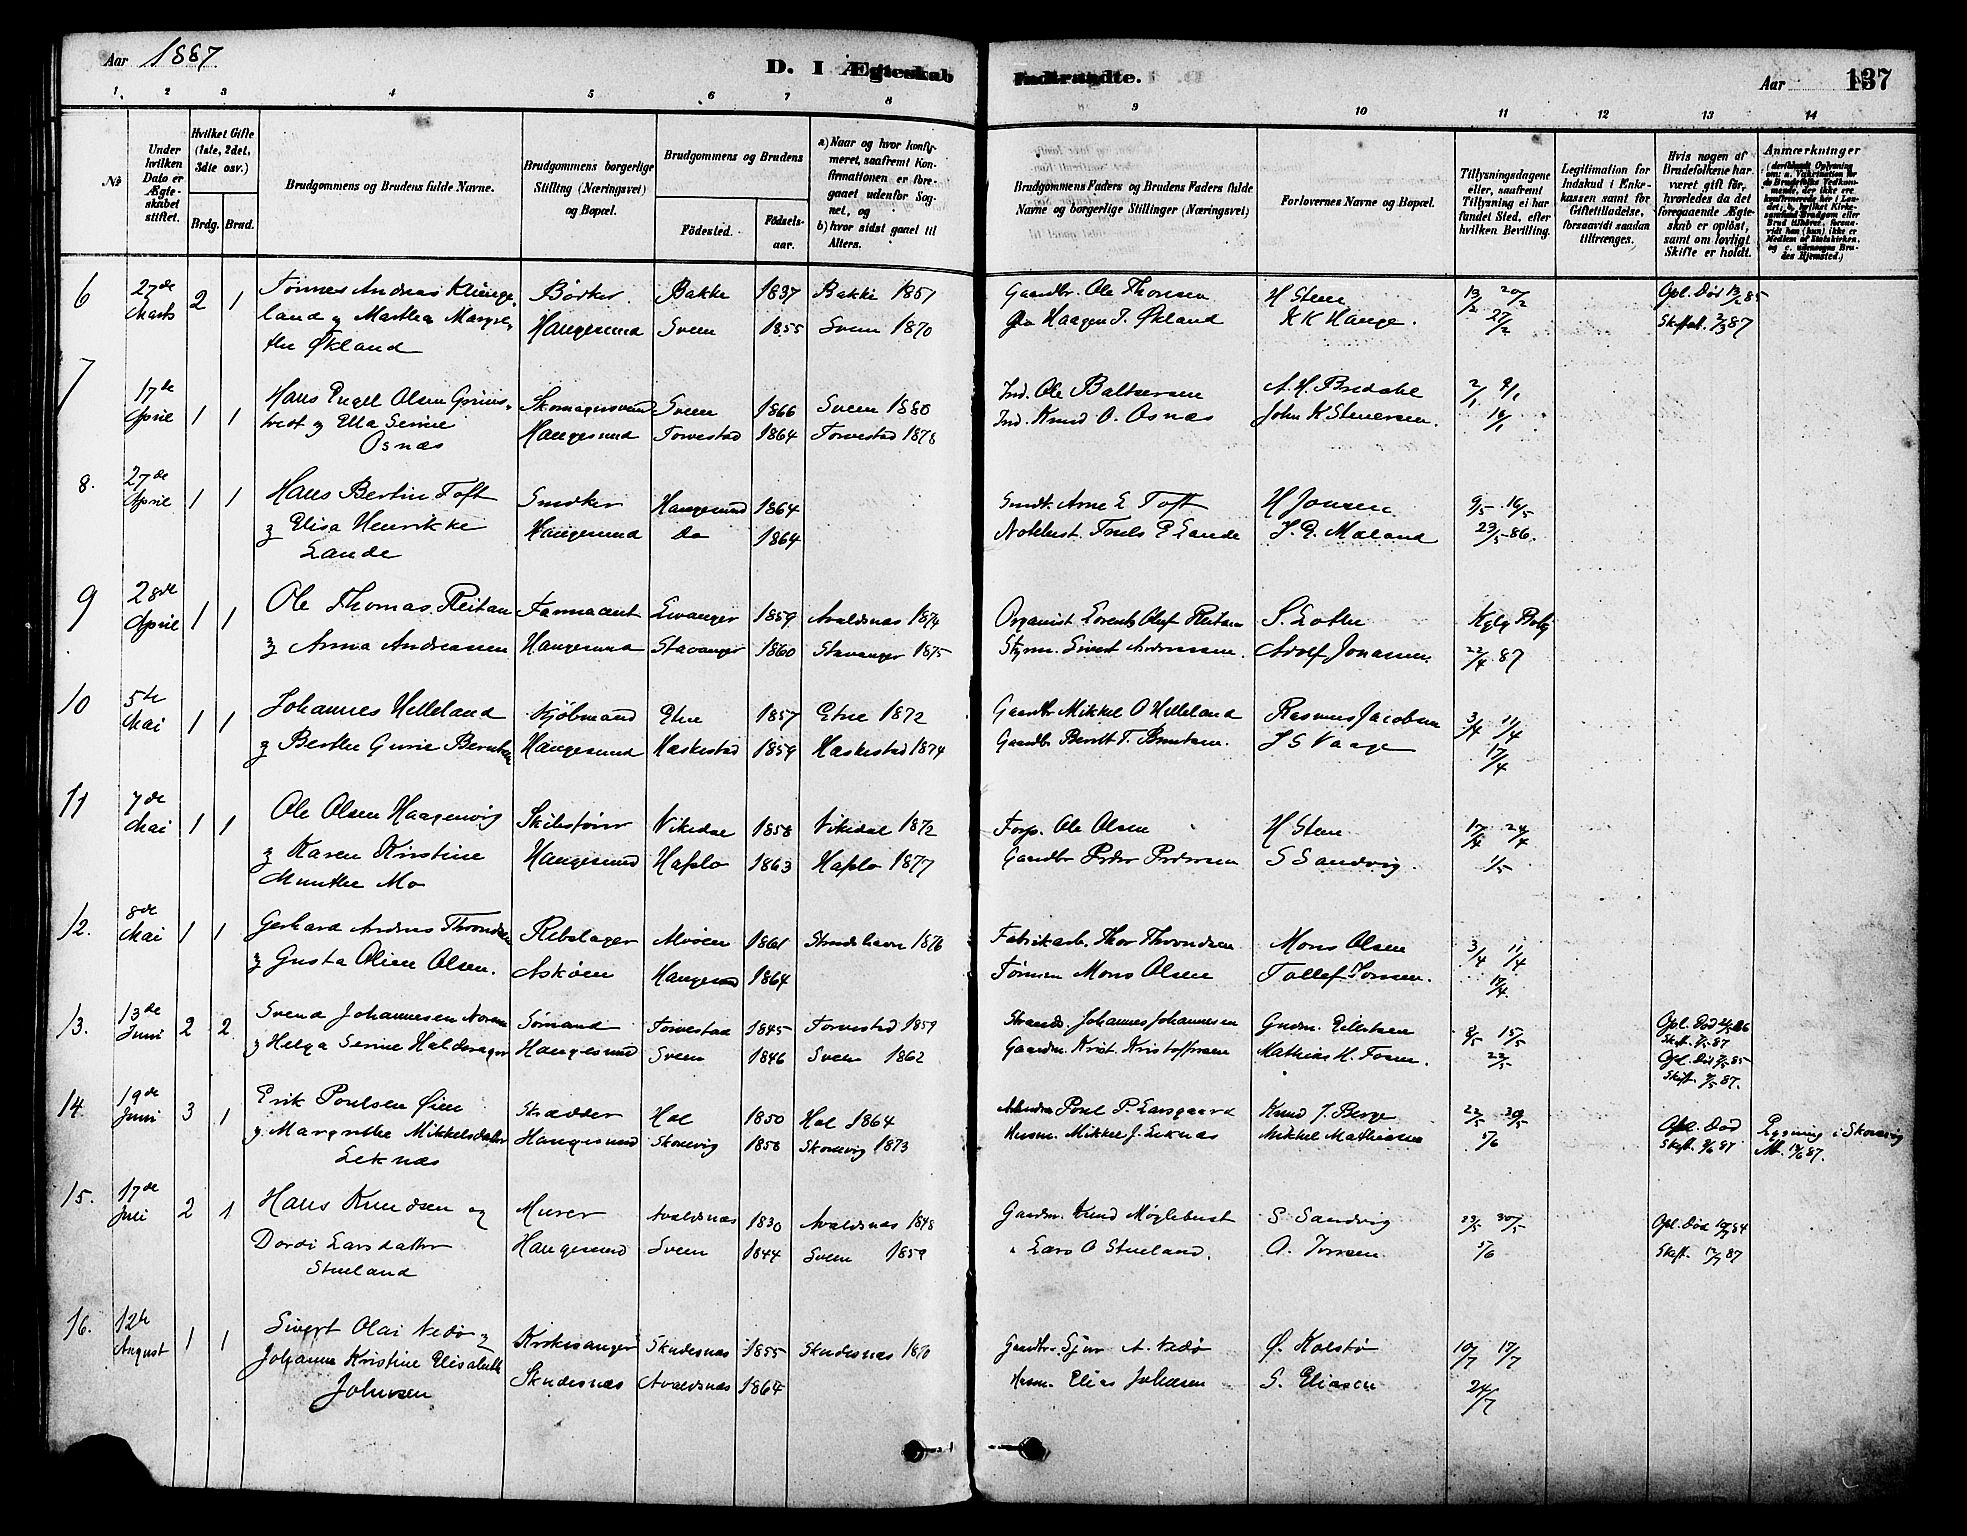 Aar 1887.
D. I Ægteskab Indtraadte.
Aar 137
1. 2 3 4 5 6 7 8 9 10 11 12 13 14
No
Under hvilken Dato er Ægteskabet stiftet.
Hvilket Gifte (1ste, 2det, 3die osv.)
Brdg. Brud.
Brudgommens og Brudens fulde Navne.
Brudgommens borgerlige Stilling (Næringsvei) og Bopæl.
Brudgommens og Brudens
Födested. Födsels-aar.
a) Naar og hvor konfirmeret, saafremt Konfirmationen er foregaaet udenfor Sognet, og
b) hvor sidst gaaet til Alters.
Brudgommens Faders og Brudens Faders fulde Navne og borgerlige Stillinger (Næringsvei)
Forlovernes Navne og Bopæl.
Tillysningsdagene eller, saafremt Tillysning ei har fundet Sted, efter hvilken Bevilling.
Legitimation for Indskud i Enkekassen samt for Giftetilladelse, forsaavidt saadan tiltrænges.
Hvis nogen af Brudefolkene har været gift før, hvorledes da det foregaaende Ægteskab er oplöst, samt om lovligt Skifte er holdt.
Anmærkninger
6 27de Marts 2 1 Tönnes Andreas Klunge- Bödker. Bakke 1837 Bakke 1851 Gaardbr. Ole Thorsen H Steen 13/2 20/2 Opl. Död 13/2 85
land og Marthea Margre- Haugesund Sveen 1855 Sveen 1870 Haagen T. Økland K K Hauge. 27/2 Skifteat. 2/3 87
the Økland
7 17de April 1 1 Hans Engel Olsen Sveen 1866 Sveen 1880 Ind. Ole Baltzersen A. H. Bredahl 2/1 9/1
og Ella Serine Haugesund Torvestad 1864 Torvestad 1878 Ind. Knud O. Osnæs John K Stenersen. 16/1
Osnæs
8. 27de April 1 1 Hans Bertin Toft Snedker Haugesund 1864 Snedk. Arne E Toft H Jonsen 9/5 16/5
og Elisa Henrikke Haugesund Do 1864 Lande J. E. Maland 23/5-86.
Lande
9 28de April 1 1 Ole Thomas Reitan Farmaceut 1859 Avaldsnæs 1874 Organist Lorentz Oluf Reitan S. Lothe Kglg Bvlg
og Anna Andreassen Haugesund Stavanger 1860 Stavanger 1875 Styrm. Sivert Andreassen. Adolf Jonassen. 22/4 87
10 5te Mai 1 1 Johannes Helleland Kjöbmand Etne 1857 Etne 1872 Gaardbr Mikkel O Helleland Rasmus Jacobsen 3/4 11/4
og Berthe Gurie Haugesund Haskestad 1859 Haskestad 1874 Gaardbr J S Vaage 17/4
11 7de Mai 1 1 Ole Olsen Haagenvig Vikedal 1858 Vikedal 1872 Forp. Ole Olsen H Steen 17/4 24/4
og Karen Kristine Haugesund Hafslo 1863 Hafslo 1877 Gaardbr Peder Pedersen S Sandvig 1/5
Munthe Mo
12. 8de Mai 1 1 Gerhard Andreas Throndsen Rebslager Mosöen 1861 1876 Fabrikarb. Thor Throndsen Mons Olsen 3/4 11/4
og Gusta Oline Olsen. Askøen Haugesund 1864 Tömmerm Mons Olsen Tollef 17/4
13. 13de Juni 2 2 Svend Johannesen Sömand Torvestad 1845 Torvestad 1859 Strands. Johannes Johannesen Gudm. Eilertsen 8/5 15/5
og Helga Serine Haldoragen Haugesund Sveen 1846 Sveen 1862 Gaardm. Krist. Kristoffersen Mathias H. Fosen. 22/5 Skift. 87
14. 19de Juni 3 1 Erik Poulsen Øien Skrædder Hol 1850 Hol 1864 Poul P. Larsgaard Knud J. Berge 22/5 30/5 Opl. Död Lysning i Skonevig
og Margrethe Mikkelsdatter Haugesund Skonevig 1858 Skonevig 1873 Husm. Mikkel J. Leknæs Mikkel Mathiesen 5/6 Skift. 87
Leknæs
15. 17de Juli 2 1 Hans Knudsen og Murer Avaldsnæs 1830 Avaldsnæs 1848 Gaardm. Knud Møglebust S Sandvig 23/5 30/5 Opl. Död 84
Dordi Larsdatter Haugesund Sveen 1844 Sveen 1859 " Lars O Stueland. O. Iversen 5/6 Skift. 87
Stueland
16. 12te August 1 1 Sivert Olai Vedø og Kirkesanger Skudesnæs 1855 Skudesnæs 1870 Gaardbr. Sjur A. Vedø Ø. Kolstø 10/7 17/7
Johanne Kristine Elisabeth Skudesnæs Avaldsnæs 1864 Husm. Elias Johnsen S. Eliasen 24/7
Johnsen